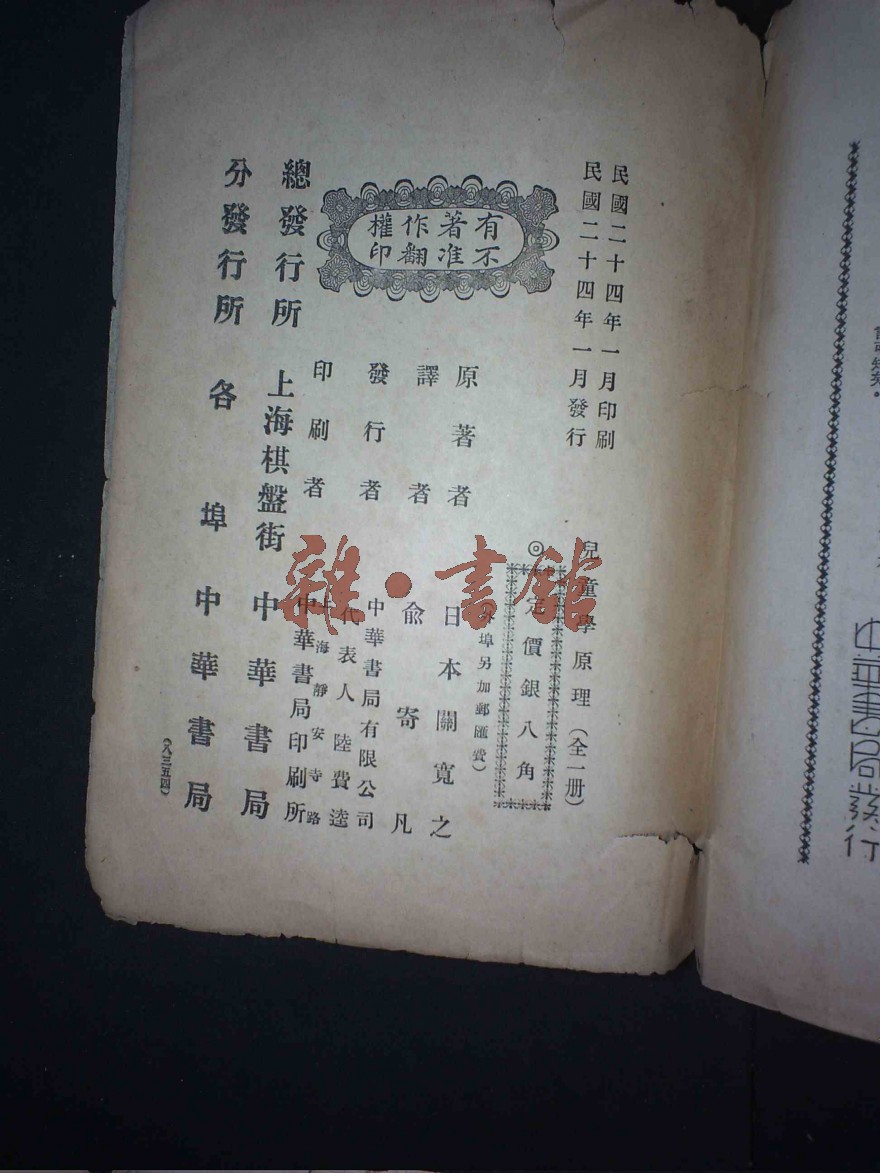 民國二十四年一月印刷
民國二十四年一月發行
兒童學原理(全一册)
◎定價銀八角
外埠另加郵匯費)
有著作權
不准翻印
原著者 日本關寬之
譯者 俞寄凡
發行者 中華書局有限公司
代表人 陸費逵
印刷者 上海靜安寺路
中華書局印刷所
總發行所 上海棋盤街 中華書局
分發行所 各埠 中華書局
(八三五四)
雜·書館
中華書局發行